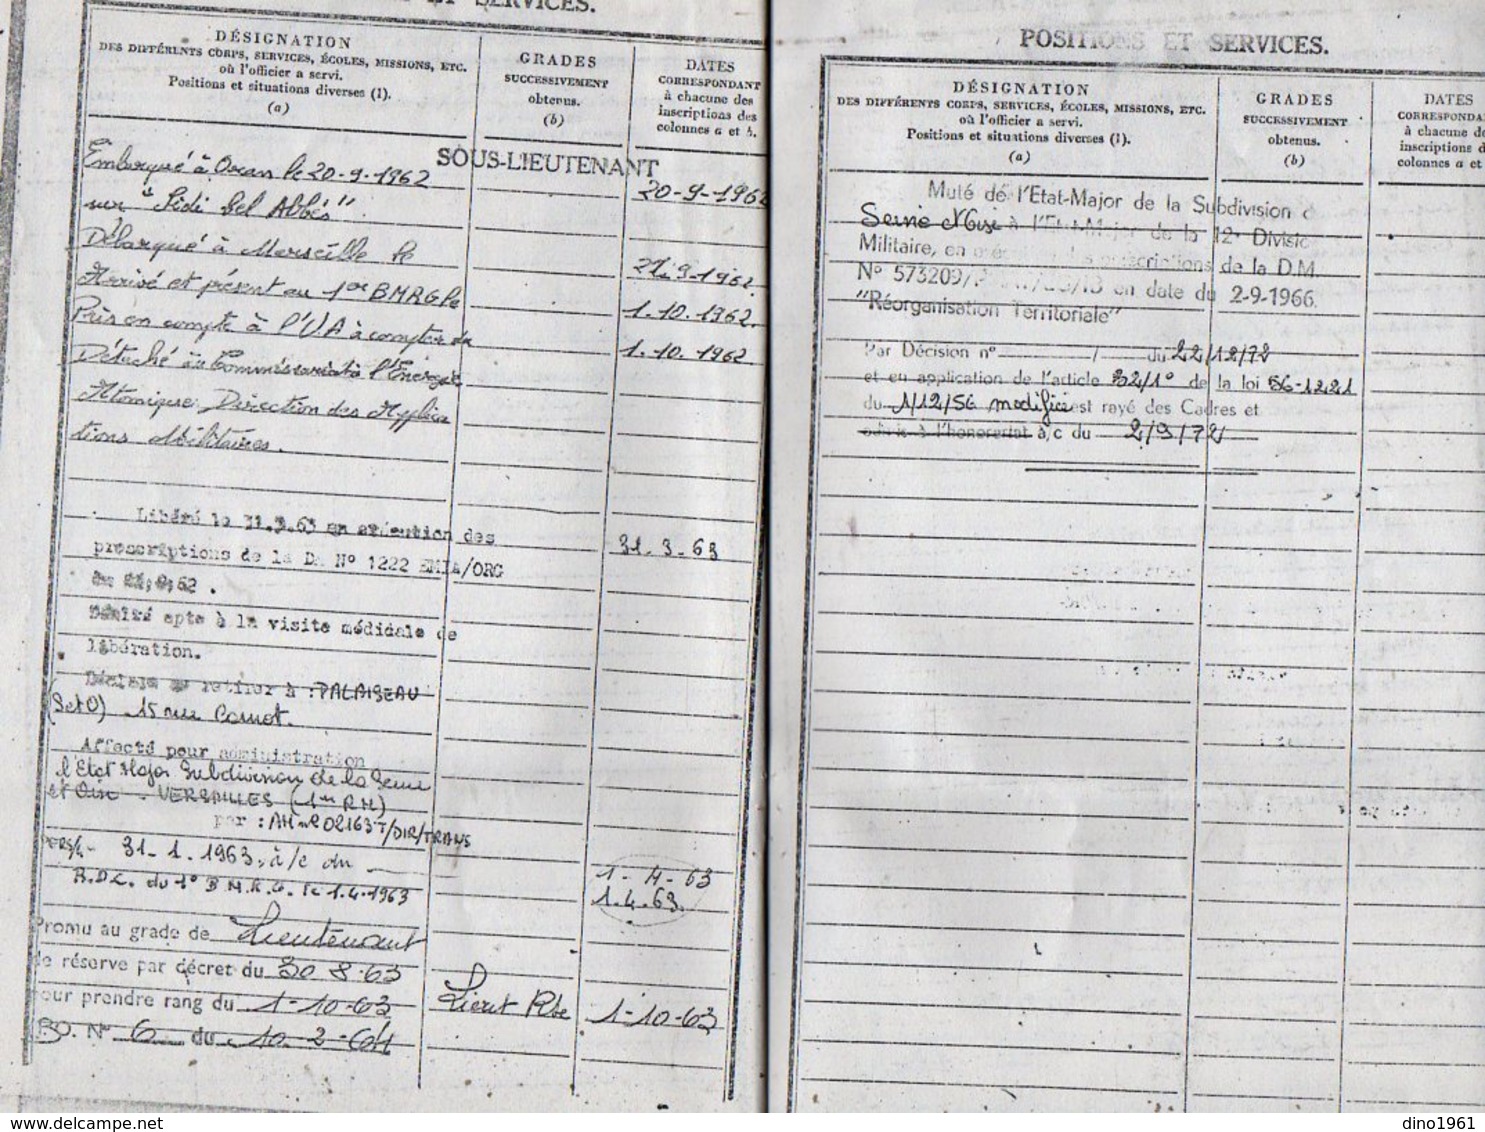 ET SERVICES.
DÉSIGNATION
DES DIFFÉRENTS CORPS, SERVICES, ÉCOLES, MISSIONS, ETC.
où l'officier a servi.
Positions et situations diverses (1).
(a)
GRADES
SUCCESSIVEMENT
obtenus.
(b)
DATES
CORRESPONDANT
à chacune des
inscriptions des
colonnes a et b.
SOUS-LIEUTENANT
Embarqué à Oran le 20-9-1962
20-9-1962
sur "Sidi bel Abbés".
Débarqué à Marseille le
21.9.1962.
Arrivé et présent au 1er BMRG le
1.10.1962.
Pris en compte à l'U.A à compter du
1.10.1962
Détaché au Commissariat à l'Energie
Atomique Direction des Applica
tions Militaires.
Libéré le 31.3.63 en exécution des
31-3-63
prescriptions de la DM N° 1222 EMIA/ORG
.62.
Déclaré apte à la visite médicale de
libération.
Déclare se retirer à : PALAISEAU
(S et O) 15 rue Carnot.
Affecté pour administration
l'Etat Major Subdivision de la Seine
et Oise - VERSAILLES (1ère RM)
par : AM n° 02163 T/DIR/TRANS
PERS/4 - 31-1-1963, à/c du
1-4-63
R.D.C. du 1° B.M.R.G. le 1.4.1963
1.4.63.
Promu au grade de Lieutenant
de réserve par décret du 30 8-63
pour prendre rang du 1-10-63
Lieut Rve
1-10-63
BO. N° 6 du 10-2-64
POSITIONS ET SERVICES.
DÉSIGNATION
DES DIFFÉRENTS CORPS, SERVICES, ÉCOLES, MISSIONS, ETC.
où l'officier a servi.
Positions et situations diverses (1).
(a)
GRADES
SUCCESSIVEMENT
obtenus.
(b)
DATES
CORRESPONDA
à chacune de
inscriptions d
colonnes a et
Muté de l'Etat-Major de la Subdivision d
Seine & Oise à l'Etat-Major de la 12e Divisic
Militaire, en prescriptions de la D.M.
N° 573209/ en date du 2-9-1966.
"Réorganisation Territoriale"
Par Décision n° / du 22/12/72
et en application de l'article 32/1° de la loi 56-1221
du 1/12/56 modifiée est rayé des Cadres et
admis à l'honorariat à/c du 2/9/72
dino1961